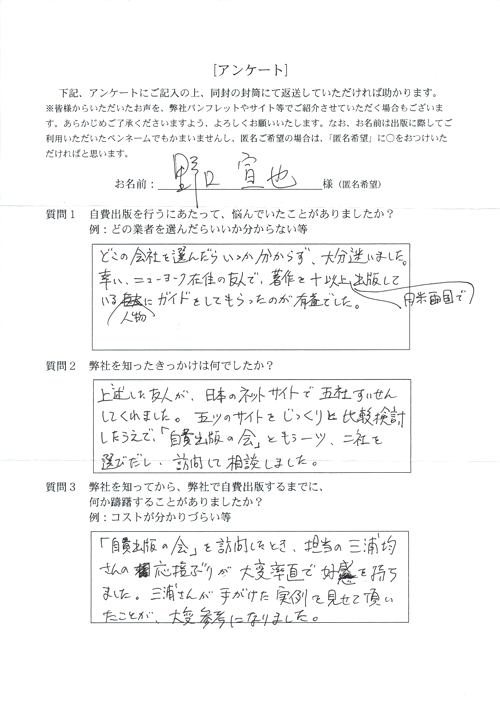 [アンケート]
下記、アンケートにご記入の上、同封の封筒にて返送していただければ助かります。
※皆様からいただいたお声を、弊社パンフレットやサイト等でご紹介させていただく場合もございま
す。あらかじめご了承くださいますよう、よろしくお願いいたします。なお、お名前は出版に際してご
利用いただいたペンネームでもかまいませんし、匿名ご希望の場合は、「匿名希望」に○をおつけいた
だければと思います。
お名前：野口 宣也 様（匿名希望）
質問１ 自費出版を行うにあたって、悩んでいたことがありましたか？
例：どの業者を選んだらいいか分からない等
どこの会社を選んだらいいか分からず、大分迷いました。
幸い、ニューヨーク在住の友人で、著作を十以上、出版して
日米両国で
いる にガイドをしてもらったのが有益でした。
人物
質問２ 弊社を知ったきっかけは何でしたか？
上述した友人が、日本のネットサイトで五社すいせん
してくれました。五ツのサイトをじっくりと比較検討
したうえで、「自費出版の会」ともう一ツ、二社を
選びだし、訪問して相談しました。
質問３ 弊社を知ってから、弊社で自費出版するまでに、
何か躊躇することがありましたか？
例：コストが分かりづらい等
「自費出版の会」を訪問したとき、担当の三浦均
さんの応接ぶりが大変率直で好感を持ち
ました。三浦さんが手がけた実例を見せて頂い
たことが、大変参考になりました。